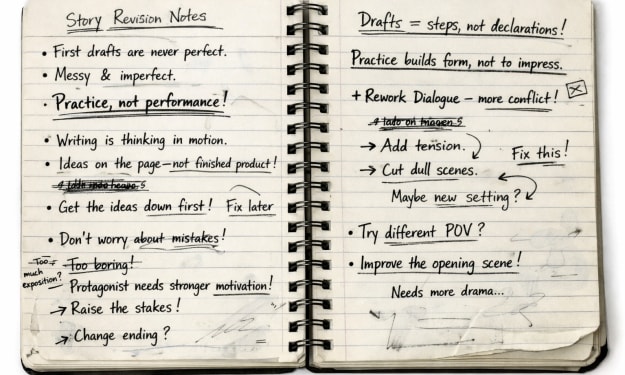 Story Revision Notes
• First drafts are never perfect.
• Messy & imperfect.
• Practice, not performance!
• Writing is thinking in motion.
• Ideas on the page—not finished product!
• Get the ideas down first! Fix later
• Don't worry about mistakes!
Too much exposition?
Too boring!
Protagonist needs stronger motivation!
→ Raise the stakes!
→ Change ending?
Drafts = steps, not declarations!
Practice builds form, not to impress.
+ Rework Dialogue – more conflict!
→ Add tension.
Fix this!
→ Cut dull scenes.
Maybe new setting?
• Try different POV?
• Improve the opening scene!
Needs more drama...